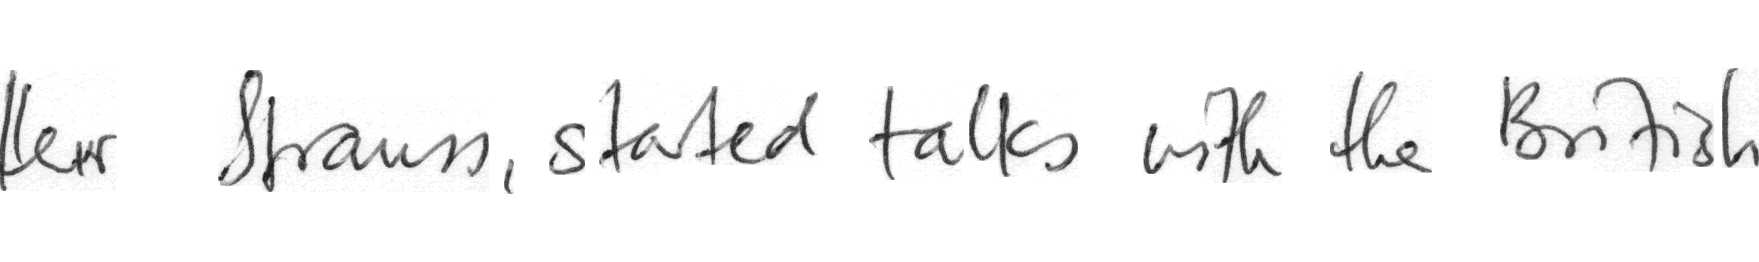 Herr Strauss, started talks with the British